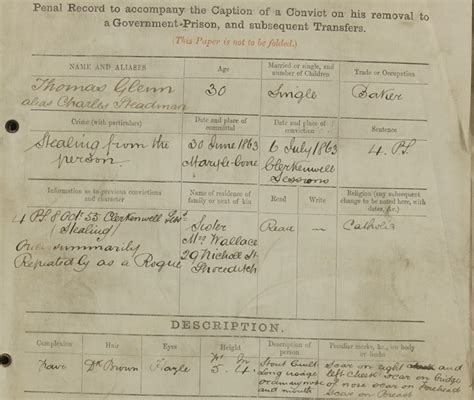 Penal Record to accompany the Caption of a Convict on his removal to
a Government-Prison, and subsequent Transfers.
(This Paper is not to be folded.)
NAME AND ALIASES
Age
Married or single, and number of Children
Trade or Occupation
Thomas Glenn
alias Charles Steadman
30
Single
Baker
Crime (with particulars)
Date and place of committal
Date and place of conviction
Sentence
Stealing from the
person.
30 June 1863
Maryle-bone
6 July 1863
Clerkenwell
Sessions
4. PS
Information as to previous convictions and character
Name of residence of family or next of kin
Read
Write
Religion (any subsequent change to be noted here, with dates, &c.)
4 PS 8 Oct 55 Clerkenwell Sess.
Stealing
summarily
Repeatedly as a Rogue
Sister
Mrs Wallace
29 Nicholl St
Shoreditch
Read
Catholic
DESCRIPTION.
Complexion
Hair
Eyes
Height
Description of person
Peculiar marks, &c., on body or limbs
Dk Brown
Hazle
Ft In
5. 4
Stout built
Long visage
nose
and mouth
Scar on right and
left cheek scar on bridge
of nose scar on forehead
scar on breast